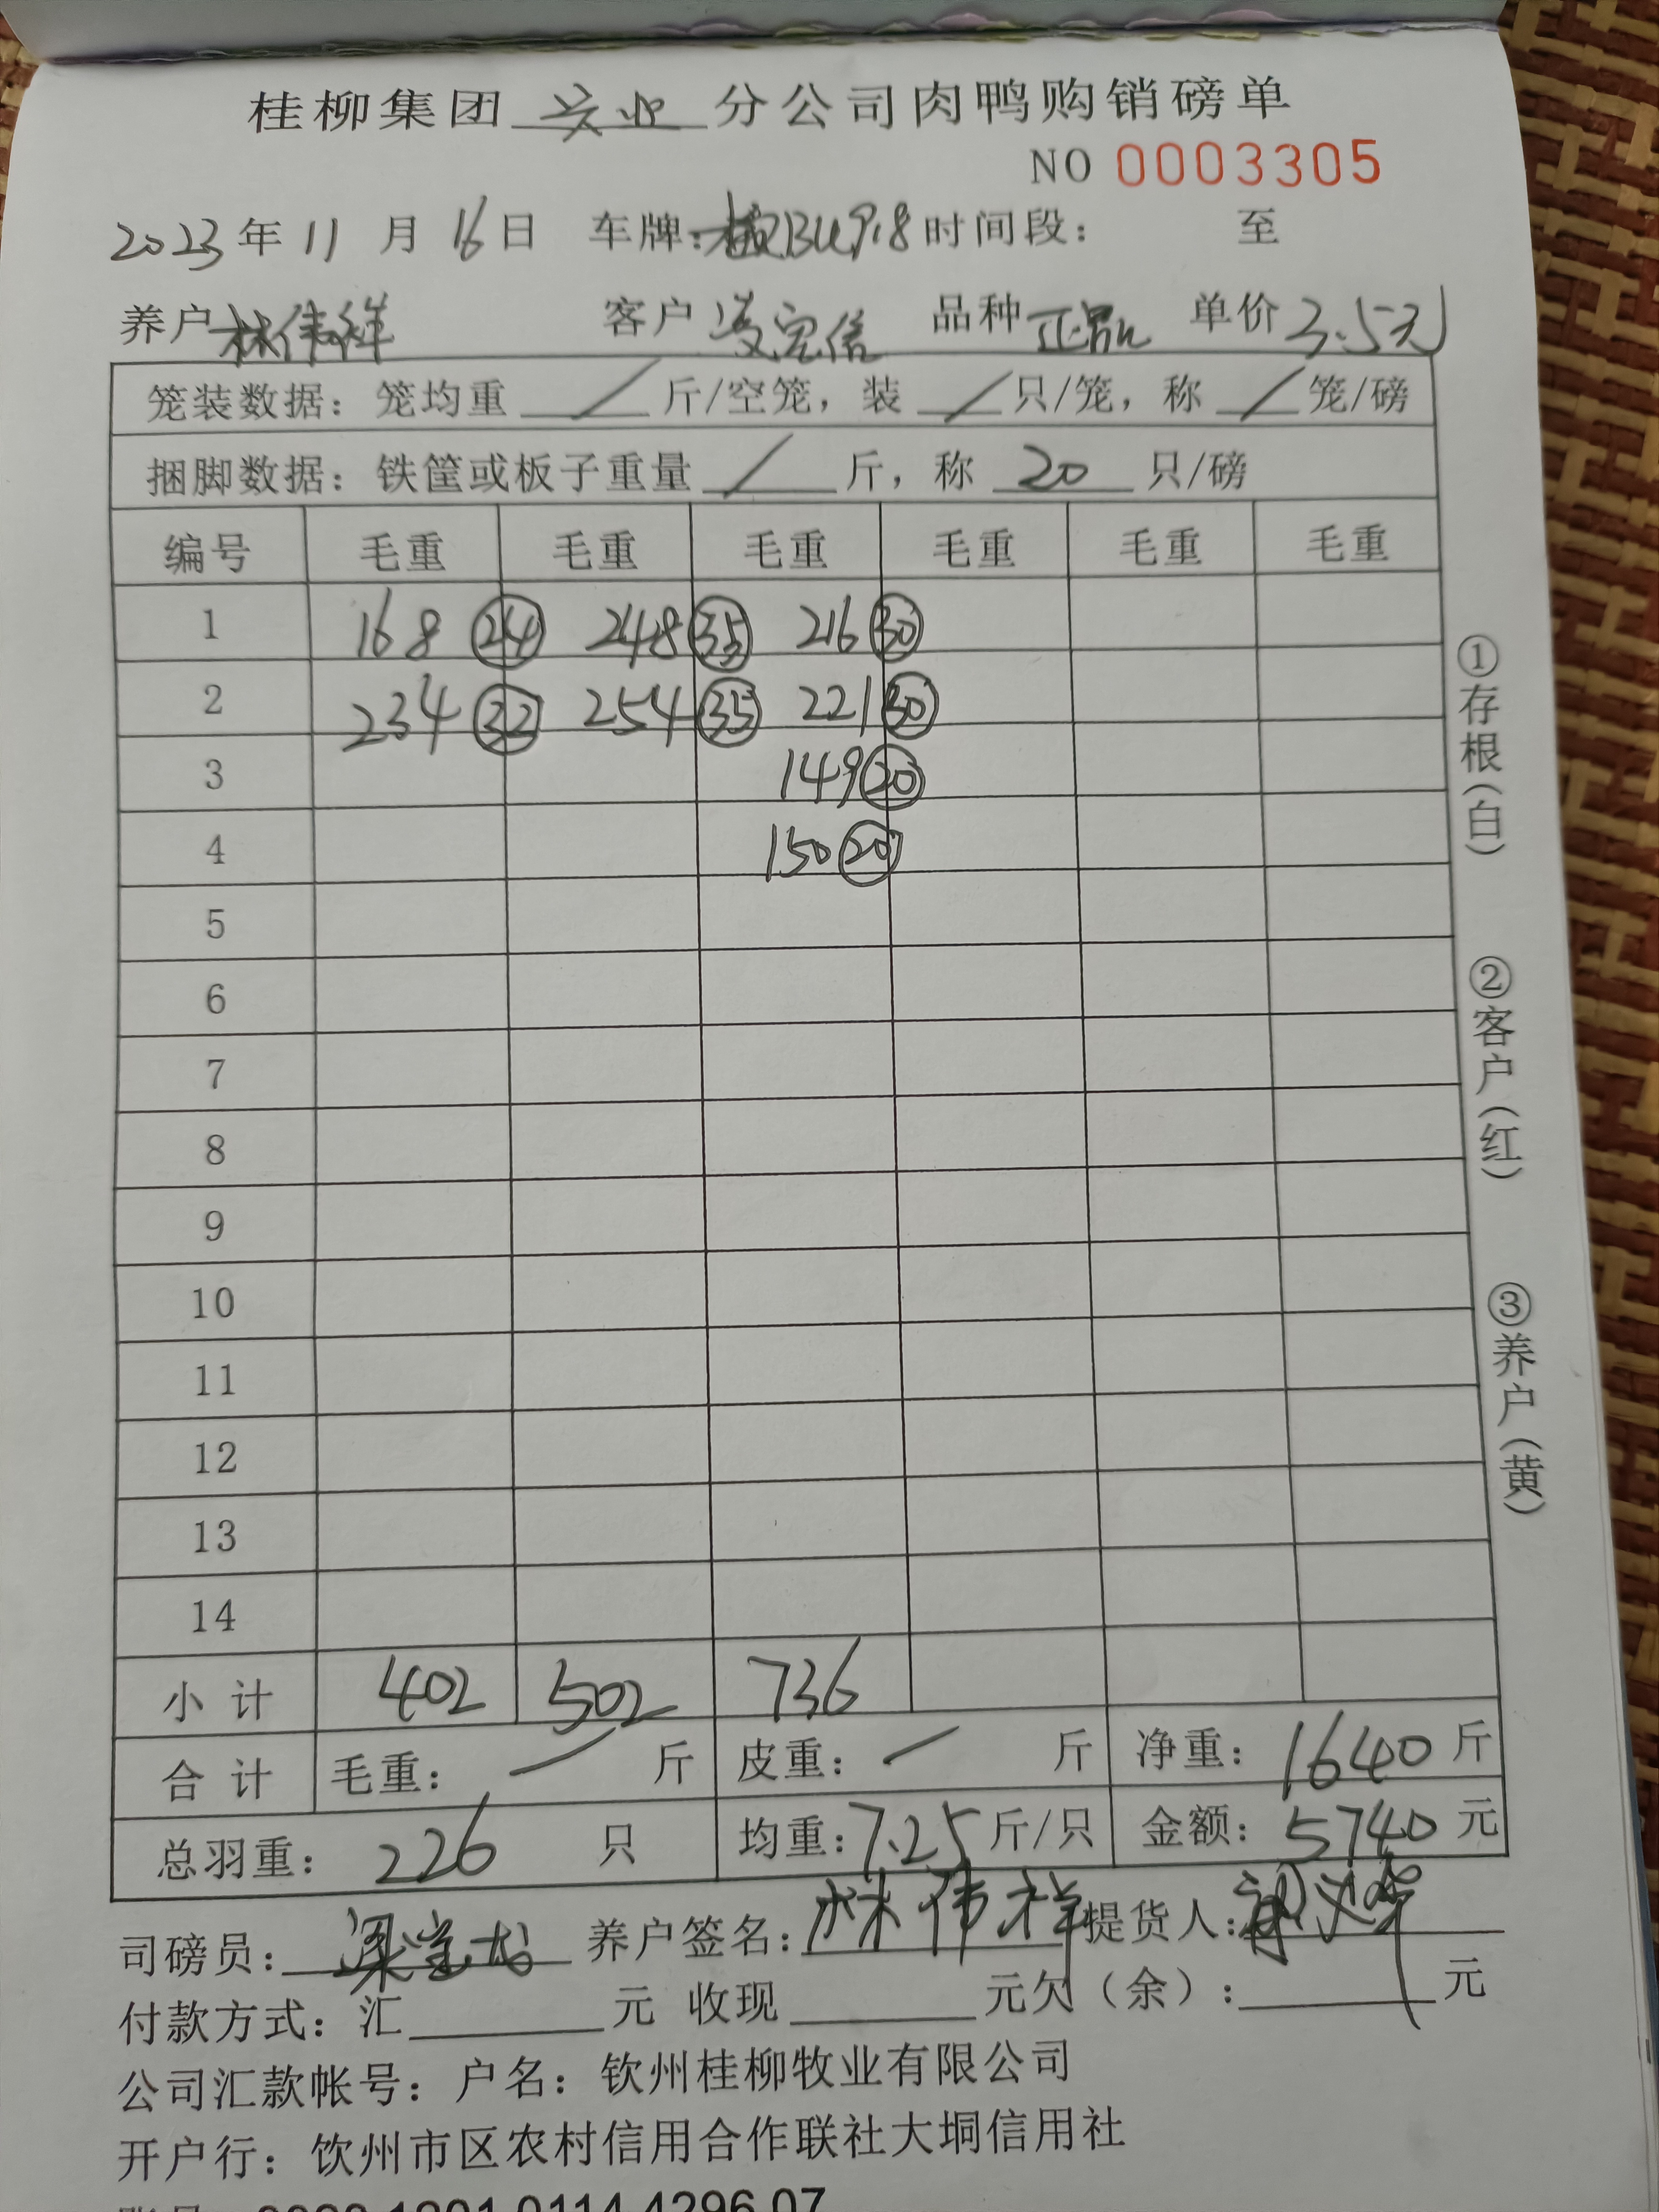 桂柳集团 兴业 分公司肉鸭购销磅单
NO 0003305
2023年 11 月 16日 车牌: 时间段: 至
养户 林伟祥 客户 信 品种 正品 单价 3.5元
笼装数据: 笼均重 / 斤/空笼, 装 / 只/笼, 称 / 笼/磅
捆脚数据: 铁筐或板子重量 / 斤, 称 20 只/磅
编号 毛重 毛重 毛重 毛重 毛重 毛重
1 168 24 248 35 216 30
2 234 32 254 35 221 30
3 149 20
4 150 20
5
6
7
8
9
10
11
12
13
14
小计 402 502 736
合计 毛重: / 斤 皮重: / 斤 净重: 1640 斤
总羽重: 226 只 均重: 7.25 斤/只 金额: 5740 元
司磅员: 梁 养户签名: 林伟祥 提货人:
付款方式: 汇 元 收现 元欠(余): 元
公司汇款帐号: 户名: 钦州桂柳牧业有限公司
开户行: 饮州市区农村信用合作联社大垌信用社
①存根(白)
②客户(红)
③养户(黄)